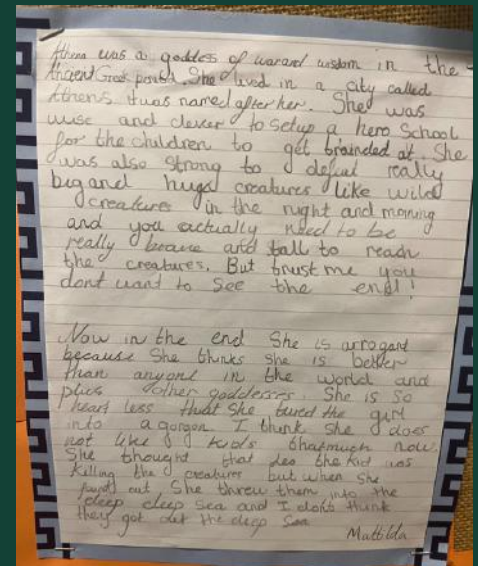 Athena was a goddes of warand wisdom in the
Ancient Greek period. She lived in a city called
Athens. It was named after her. She was
wise and clever to setup a hero School
for the children to get brainded at. She
was also strong to defeat really
big and huge creatures like wild
creature in the night and morning
and you actually need to be
really brave and tall to reach
the creatures. But trust me you
dont want to See the end!
Now in the end She is arrogant
because She thinks she is better
than anyone in the world and
plus other goddesses. She is So
heart less that She tured the girl
into a gorgon. I think She does
not like kids thatmuch now.
She thought that the kid was
killing the creatures but when she
found out She threw them into the
deep deep Sea and I don't think
they got out the deep Sea
Mattilda